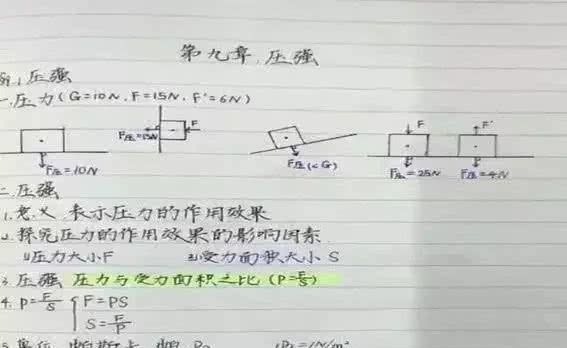 第九章 压强
§9.1 压强
一.压力(G=10N、F=15N、F'=6N)
F压=10N
F压=15N
F
F压(<G)
F
F压=25N
F'
F压=4N
二.压强
1.意义 表示压力的作用效果
2.探究压力的作用效果的影响因素
①压力大小F ②受力面积大小 S
3.压强 压力与受力面积之比(P=F/S)
4. P=F/S { F=PS
S=F/P